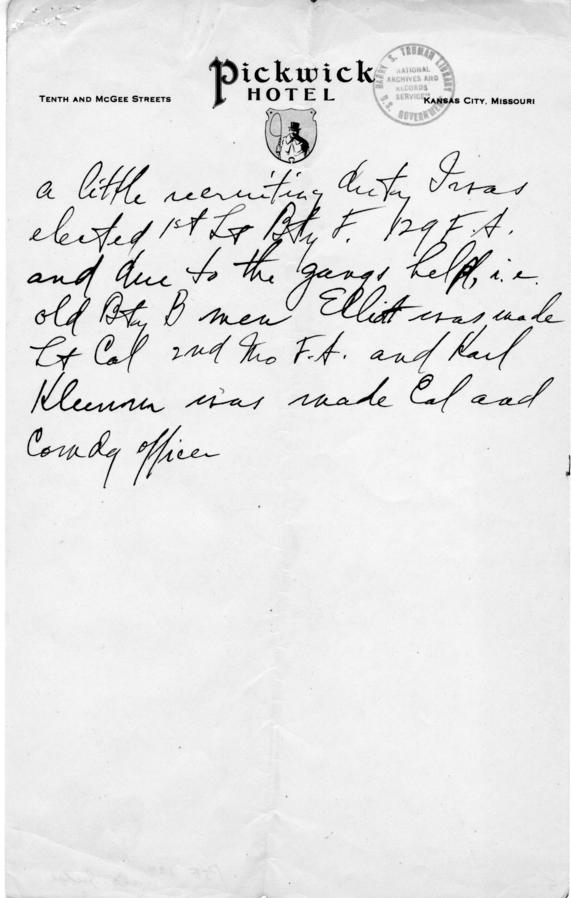 Pickwick
HOTEL
TENTH AND MCGEE STREETS
KANSAS CITY, MISSOURI
HARRY S. TRUMAN LIBRARY
NATIONAL
ARCHIVES AND
RECORDS
SERVICE
U.S. GOVERNMENT
a little recruiting duty I was
elected 1st Lt Bty F. 129 F.A.
and due to the gangs help, i.e.
old Bty B men Elliott was made
Lt Col 2nd Mo F.A. and Karl
Klemm was made Col and
Comdg officer